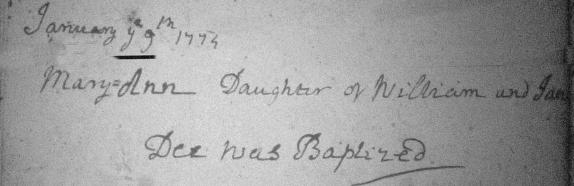 January yᵉ 9ᵗʰ 1774
Mary=Ann Daughter of William and Jan
Dee was Baptized